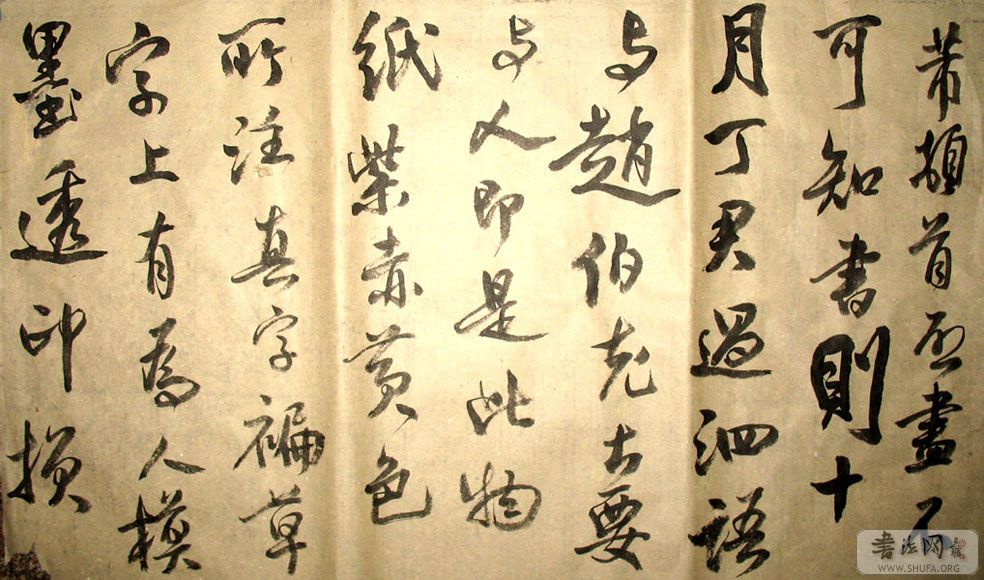 芾頓首启畫不
可知書則十
月丁君過泗語
与趙伯充云要
与人即是此物
紙紫赤黄色
所注真字褊草
字上有為人模
墨透印損
書法网
WWW.SHUFA.ORG